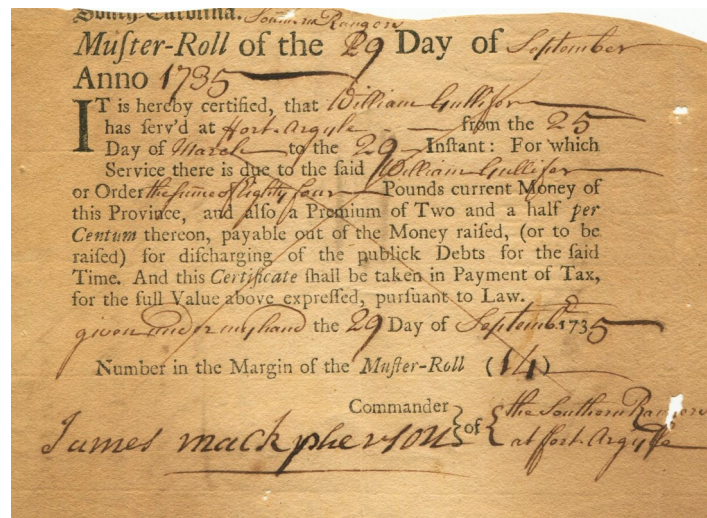 South Carolina. Southern Rangers
Muſter-Roll of the 29 Day of September
Anno 1735
IT is hereby certified, that William Gullifer
has ſerv'd at Fort Argyle from the 25
Day of March to the 29 Inſtant: For which
Service there is due to the ſaid William Gullifer
or Order the ſume of Eighty four Pounds current Money of
this Province, and alſo a Premium of Two and a half per
Centum thereon, payable out of the Money raiſed, (or to be
raiſed) for diſcharging of the publick Debts for the ſaid
Time. And this Certificate ſhall be taken in Payment of Tax,
for the full Value above expreſſed, purſuant to Law.
given under my hand the 29 Day of Septembr. 1735
Number in the Margin of the Muſter-Roll (14)
Commander } of { the Southern Rangers
James mackpherson at fort Argyle